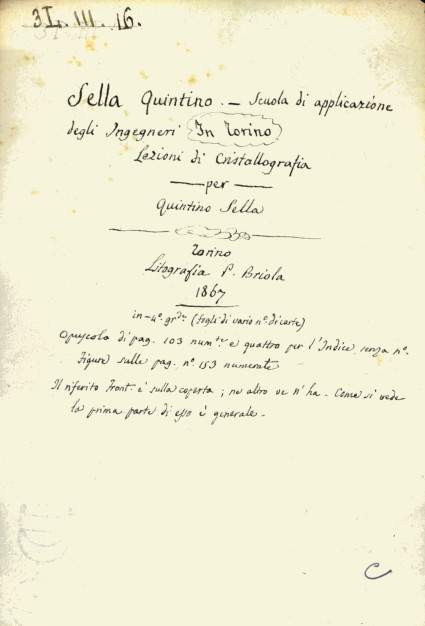 3L. III. 16.
Sella Quintino. — Scuola di applicazione
degli Ingegneri In Torino
Lezioni di Cristallografia
— per —
Quintino Sella
Torino
Litografia P. Briola
1867
in-4º. grde. (fogli di vario nº. di carte)
Opuscolo di pag. 103 numte. e quattro per l'Indice, senza nº.
Figure sulle pag. nº. 153 numerate
Il riferito front. è sulla coperta; ne altro ve n'ha. Come si vede
la prima parte di esso è generale.
C